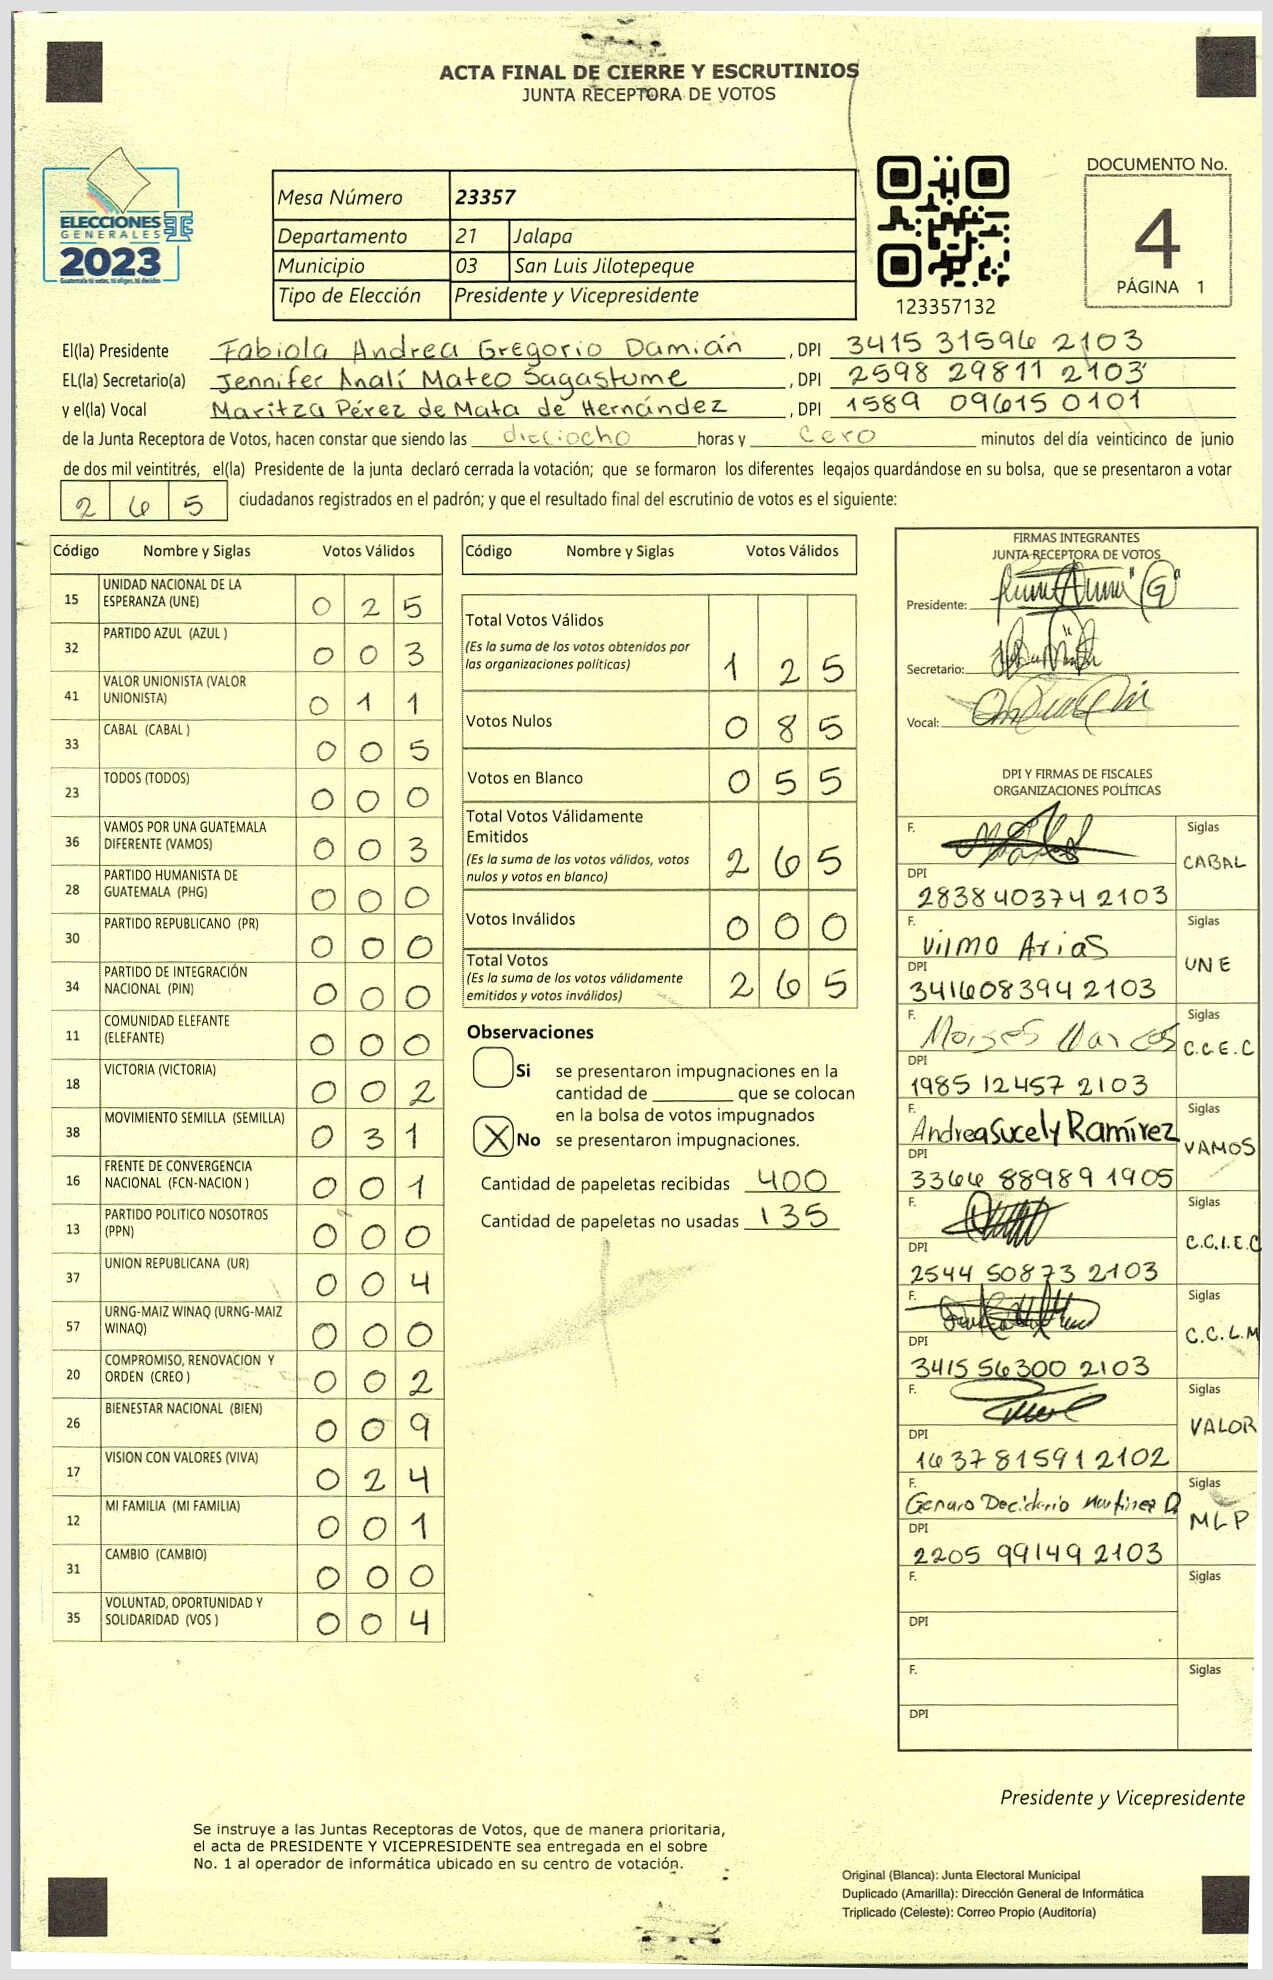 ACTA FINAL DE CIERRE Y ESCRUTINIOS
JUNTA RECEPTORA DE VOTOS
ELECCIONES
GENERALES
2023
Guatemala tú votas, tú eliges, tú decides
Mesa Número 23357
Departamento 21 Jalapa
Municipio 03 San Luis Jilotepeque
Tipo de Elección Presidente y Vicepresidente
123357132
DOCUMENTO No.
4
PÁGINA 1
El(la) Presidente Fabiola Andrea Gregorio Damián , DPI 3415 31596 2103
EL(la) Secretario(a) Jennifer Analí Mateo Sagastume , DPI 2598 29811 2103
y el(la) Vocal Maritza Pérez de Mata de Hernández , DPI 1589 09615 0101
de la Junta Receptora de Votos, hacen constar que siendo las dieciocho horas y cero minutos del día veinticinco de junio
de dos mil veintitrés, el(la) Presidente de la junta declaró cerrada la votación; que se formaron los diferentes legajos quardándose en su bolsa, que se presentaron a votar
2 6 5 ciudadanos registrados en el padrón; y que el resultado final del escrutinio de votos es el siguiente:
Código Nombre y Siglas Votos Válidos
15 UNIDAD NACIONAL DE LA ESPERANZA (UNE) 0 2 5
32 PARTIDO AZUL (AZUL ) 0 0 3
41 VALOR UNIONISTA (VALOR UNIONISTA) 0 1 1
33 CABAL (CABAL ) 0 0 5
23 TODOS (TODOS) 0 0 0
36 VAMOS POR UNA GUATEMALA DIFERENTE (VAMOS) 0 0 3
28 PARTIDO HUMANISTA DE GUATEMALA (PHG) 0 0 0
30 PARTIDO REPUBLICANO (PR) 0 0 0
34 PARTIDO DE INTEGRACIÓN NACIONAL (PIN) 0 0 0
11 COMUNIDAD ELEFANTE (ELEFANTE) 0 0 0
18 VICTORIA (VICTORIA) 0 0 2
38 MOVIMIENTO SEMILLA (SEMILLA) 0 3 1
16 FRENTE DE CONVERGENCIA NACIONAL (FCN-NACION ) 0 0 1
13 PARTIDO POLITICO NOSOTROS (PPN) 0 0 0
37 UNION REPUBLICANA (UR) 0 0 4
57 URNG-MAIZ WINAQ (URNG-MAIZ WINAQ) 0 0 0
20 COMPROMISO, RENOVACION Y ORDEN (CREO ) 0 0 2
26 BIENESTAR NACIONAL (BIEN) 0 0 9
17 VISION CON VALORES (VIVA) 0 2 4
12 MI FAMILIA (MI FAMILIA) 0 0 1
31 CAMBIO (CAMBIO) 0 0 0
35 VOLUNTAD, OPORTUNIDAD Y SOLIDARIDAD (VOS ) 0 0 4
Código Nombre y Siglas Votos Válidos
Total Votos Válidos
(Es la suma de los votos obtenidos por
las organizaciones políticas) 1 2 5
Votos Nulos 0 8 5
Votos en Blanco 0 5 5
Total Votos Válidamente
Emitidos
(Es la suma de los votos válidos, votos
nulos y votos en blanco) 2 6 5
Votos Inválidos 0 0 0
Total Votos
(Es la suma de los votos válidamente
emitidos y votos inválidos) 2 6 5
Observaciones
Si se presentaron impugnaciones en la
cantidad de ________ que se colocan
en la bolsa de votos impugnados
X No se presentaron impugnaciones.
Cantidad de papeletas recibidas 400
Cantidad de papeletas no usadas 135
FIRMAS INTEGRANTES
JUNTA RECEPTORA DE VOTOS
Presidente:
Secretario:
Vocal:
DPI Y FIRMAS DE FISCALES
ORGANIZACIONES POLÍTICAS
F. Siglas
CABAL
DPI
2838 40374 2103
F. Vilma Arias Siglas
UNE
DPI
3416083942103
F. Moises Marcos Siglas
C.C.E.C
DPI
1985 12457 2103
F. Andrea Sucely Ramírez Siglas
VAMOS
DPI
3366 88989 1905
F. Siglas
C.C.I.E.C
DPI
2544 50873 2103
F. Siglas
C.C.L.M
DPI
3415 56300 2103
F. Siglas
VALOR
DPI
1637 81591 2102
F. Genaro Deciderio Martinez D. Siglas
MLP
DPI
2205 99149 2103
F. Siglas
DPI
F. Siglas
DPI
Presidente y Vicepresidente
Se instruye a las Juntas Receptoras de Votos, que de manera prioritaria,
el acta de PRESIDENTE Y VICEPRESIDENTE sea entregada en el sobre
No. 1 al operador de informática ubicado en su centro de votación.
Original (Blanca): Junta Electoral Municipal
Duplicado (Amarilla): Dirección General de Informática
Triplicado (Celeste): Correo Propio (Auditoría)